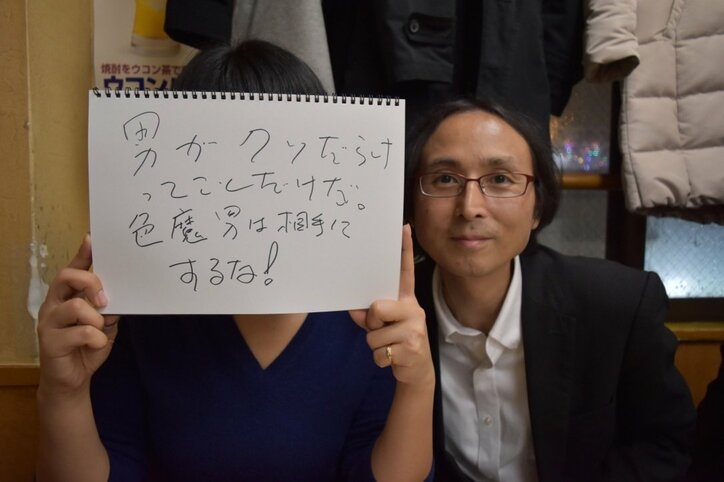 焼酎をウコン茶で
ウコン
男がクソだらけ
ってことだけだ。
色魔男は相手に
するな!